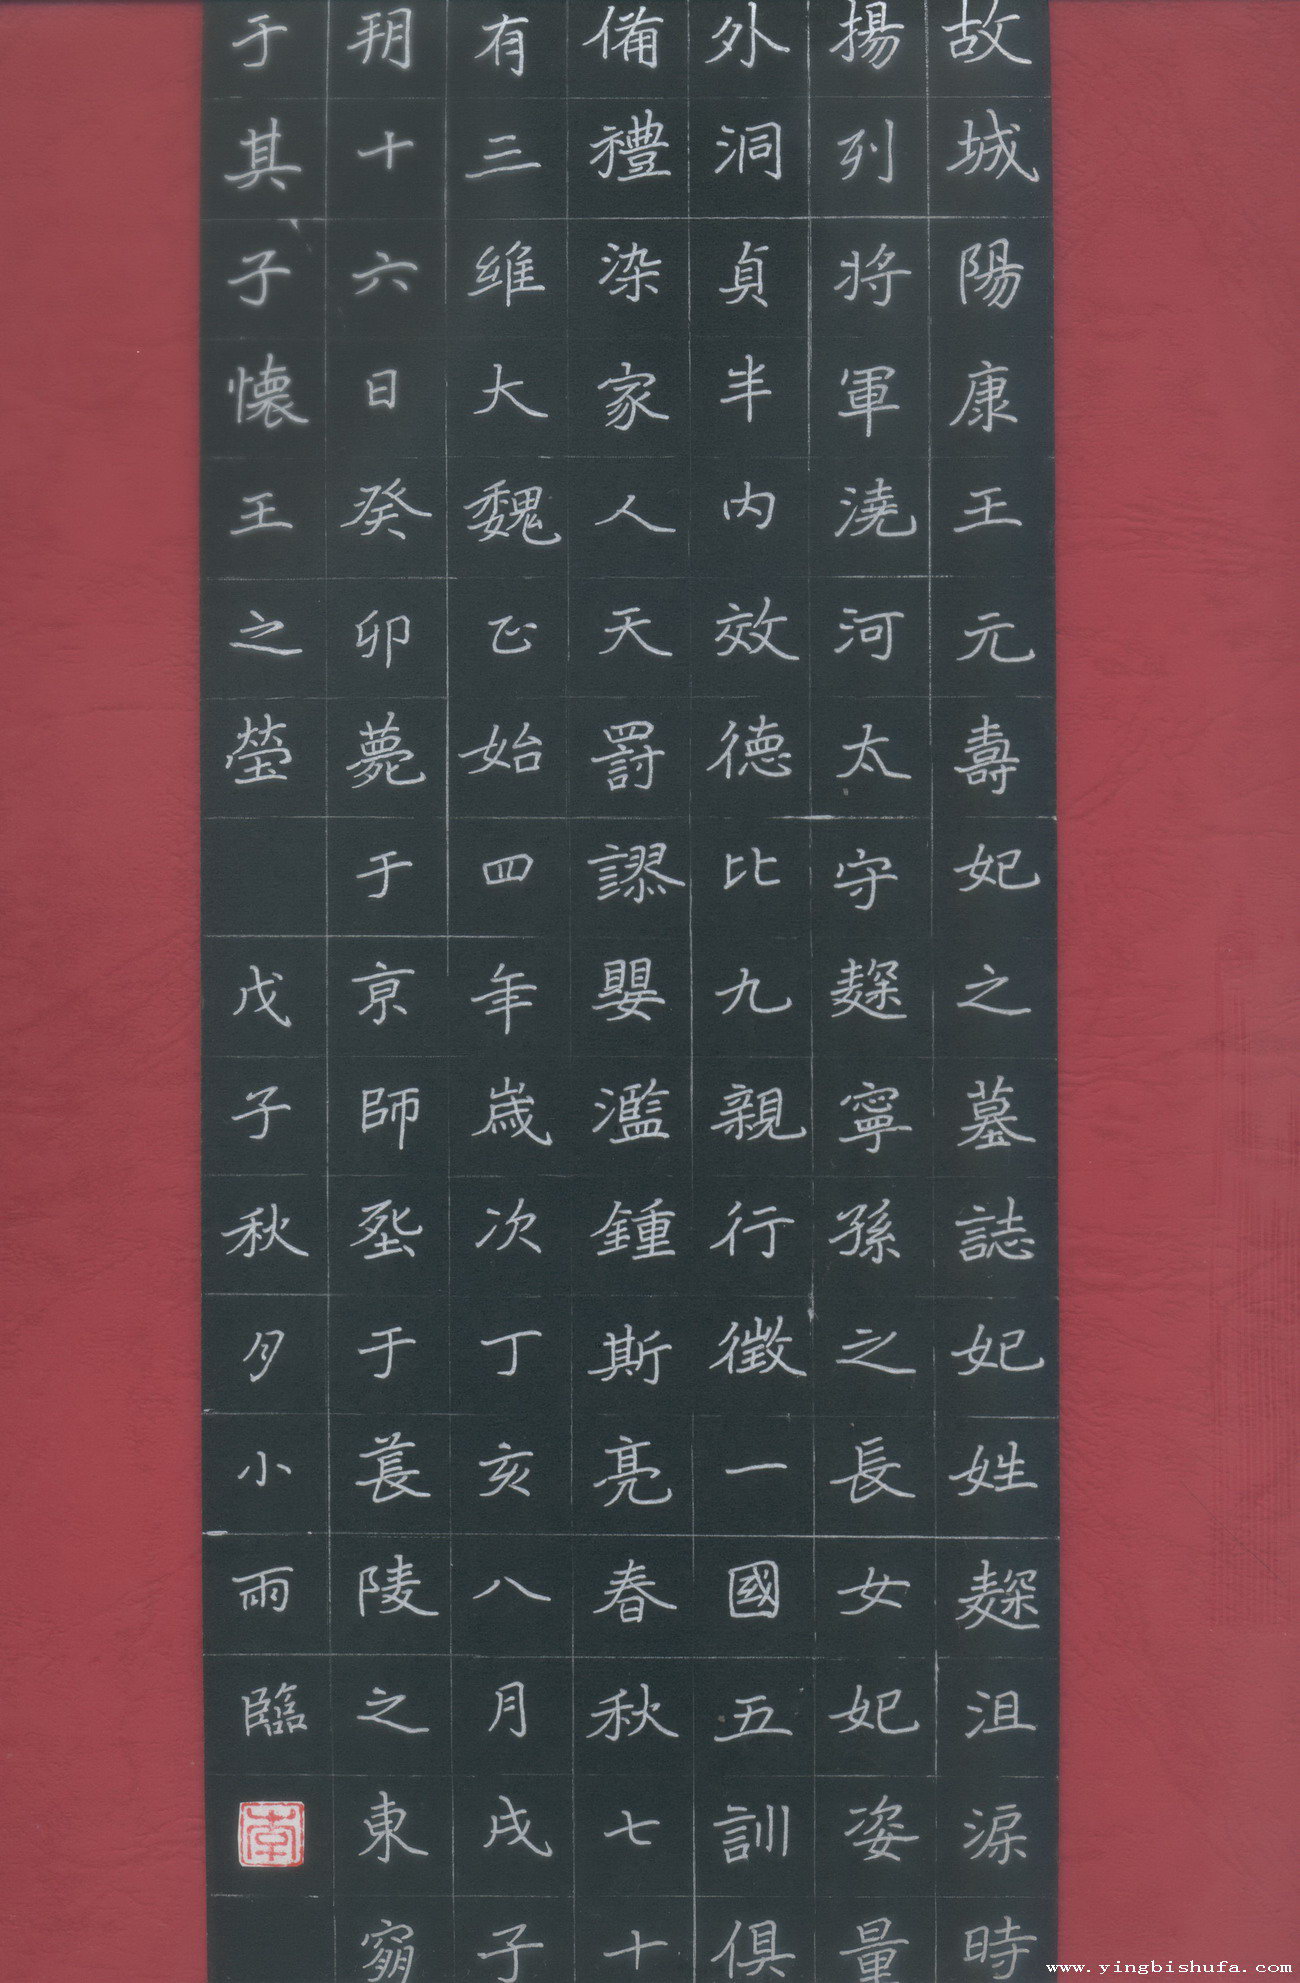 故城陽康王元壽妃之墓誌妃姓麹沮渠時
揚列將軍澆河太守麹寧孫之長女妃姿量
外洞貞半內效德比九親行徵一國五訓俱
備禮染家人天罰謬嬰濫鍾斯亮春秋七十
有三維大魏正始四年歲次丁亥八月戊子
朔十六日癸卯薨于京師塟于萇陵之東
于其子懷王之塋 戊子秋月小雨臨
www.yingbishufa.com